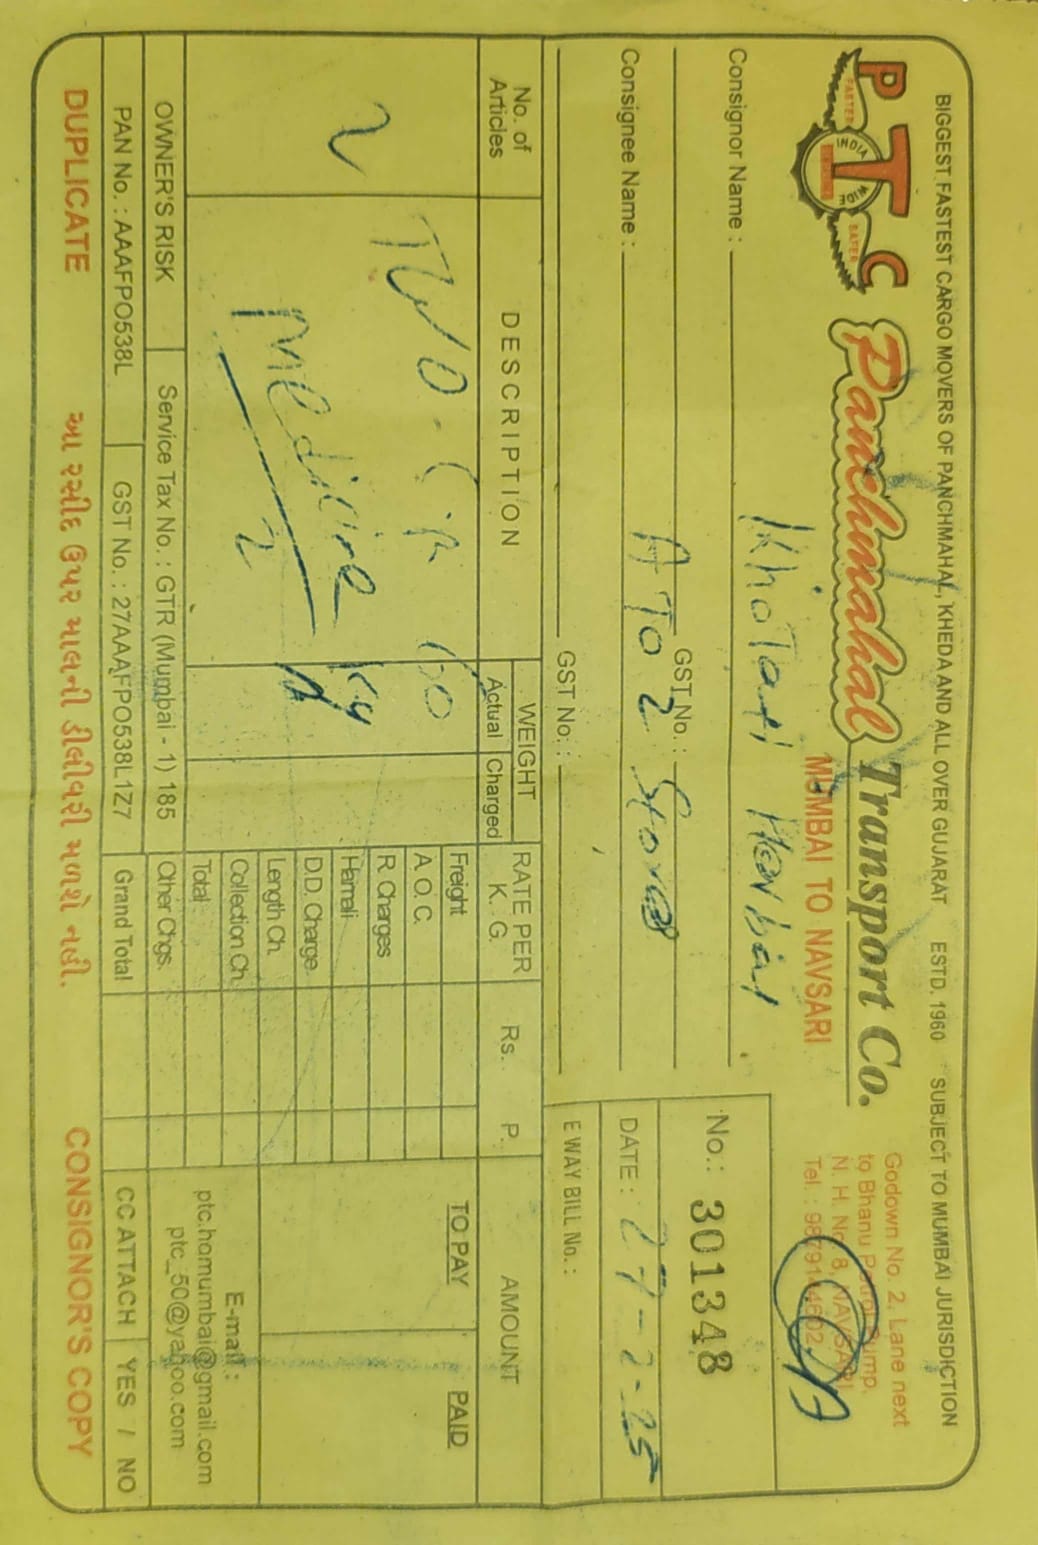 BIGGEST FASTEST CARGO MOVERS OF PANCHMAHAL, KHEDA AND ALL OVER GUJARAT ESTD. 1960 SUBJECT TO MUMBAI JURISDICTION
PTC
FASTER INDIA WIDE SAFER
Panchmahal Transport Co.
MUMBAI TO NAVSARI
Godown No. 2, Lane next
to Bhanu Petrol Pump,
N. H. No. 8, NAVSARI
Tel. :
No.: 301348
DATE : 27-2-25
E WAY BILL No. :
Consignor Name :
GST No. :
Consignee Name : A To Z Stores
GST No. :
No. of Articles DESCRIPTION WEIGHT Actual Charged RATE PER K. G. Rs. P. AMOUNT
2 TWO - C.R 60
Medicine Kg
2
Freight TO PAY PAID
A O. C.
R. Charges
Hamali
D.D. Charge
Length Ch.
Collection Ch.
Total
Other Chgs.
Grand Total
E-mail :
ptc.homumbai@gmail.com
ptc_50@yahoo.com
OWNER'S RISK Service Tax No. : GTR (Mumbai - 1) 185
PAN No. : AAAFPO538L GST No. : 27AAAFPO538L1Z7 CC ATTACH YES / NO
DUPLICATE આ રસીદ ઉપર માલની ડીલીવરી મળશે નહી. CONSIGNOR'S COPY